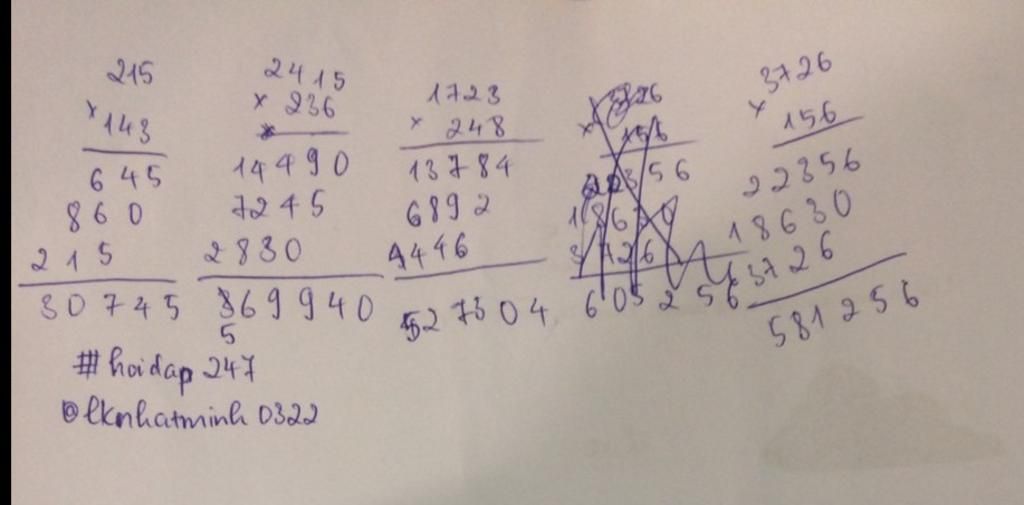 215
× 143
645
860
215
30745
2415
× 236
14490
7245
2830
369940
5
1723
× 248
13784
6892
4446
527304
× 156
56
605256
3726
× 156
22356
18630
3726
581256
#hoidap247
@lknhatminh0322